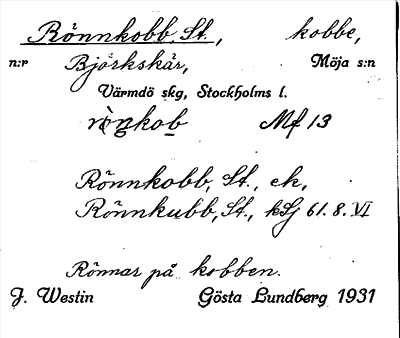 Rönnkobb, St., kobbe,
n:r Björkskär, Möja s:n
Värmdö skg, Stockholms l.
rö̀ŋkob Mf 13
Rönnkobb, St., ek,
Rönnkubb, St., kSj 61. 8. VI
Rönnar på kobben.
J. Westin Gösta Lundberg 1931